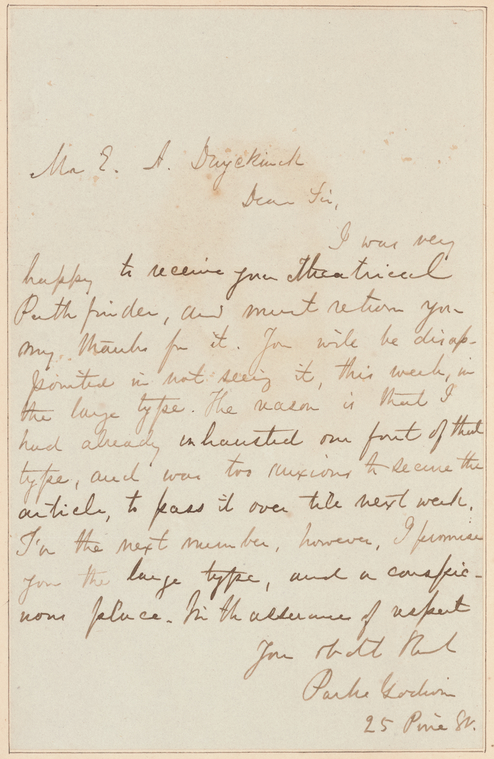 Mr E. A. Duyckinck
Dear Sir,
I was very
happy to receive your theatrical
Pathfinder, and must return you
my thanks for it. You will be disap-
pointed in not seeing it, this week, in
the large type. The reason is that I
had already inhausted our font of that
type, and was too anxious to secure the
article, to pass it over till next week.
For the next number, however, I promise
you the large type, and a conspic-
uous place. With assurance of respect
Your obdt
Parke Godwin
25 Pine St.